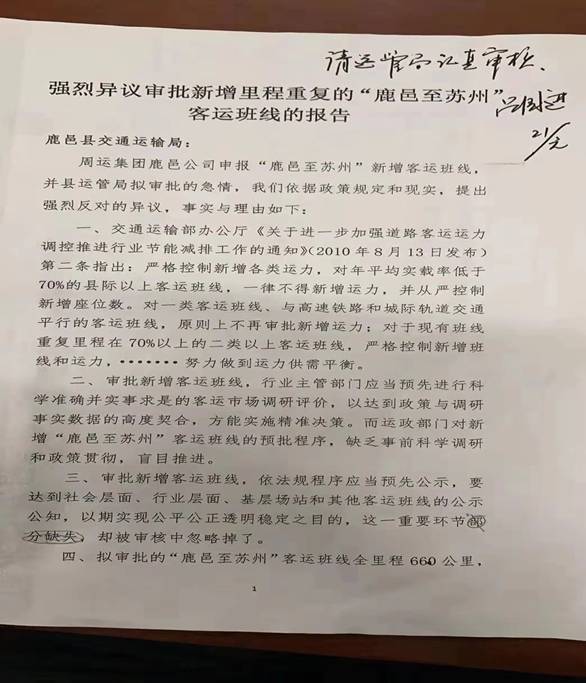 请运管局认真审核、
强烈异议审批新增里程重复的“鹿邑至苏州”
客运班线的报告
21/元
鹿邑县交通运输局:
周运集团鹿邑公司申报“鹿邑至苏州”新增客运班线,
并县运管局拟审批的急情,我们依据政策规定和现实,提出
强烈反对的异议,事实与理由如下:
一、交通运输部办公厅《关于进一步加强道路客运运力
调控推进行业节能减排工作的通知》(2010年8月13日发布)
第二条指出:严格控制新增各类运力,对年平均实载率低于
70%的县际以上客运班线,一律不得新增运力,并从严控制
新增座位数。对一类客运班线、与高速铁路和城际轨道交通
平行的客运班线,原则上不再审批新增运力;对于现有班线
重复里程在70%以上的二类以上客运班线,严格控制新增班
线和运力,•••••••努力做到运力供需平衡。
二、审批新增客运班线,行业主管部门应当预先进行科
学准确并实事求是的客运市场调研评价,以达到政策与调研
事实数据的高度契合,方能实施精准决策。而运政部门对新
增“鹿邑至苏州”客运班线的预批程序,缺乏事前科学调研
和政策贯彻,盲目推进。
三、审批新增客运班线,依法规程序应当预先公示,要
达到社会层面、行业层面、基层场站和其他客运班线的公示
公知,以期实现公平公正透明稳定之目的,这一重要环节部
分缺失,却被审核中忽略掉了。
四、拟审批的“鹿邑至苏州”客运班线全里程660公里,
1